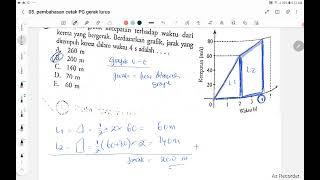 05. pembahasan cetak PG gerak lurus
kecepatan terhadap waktu dari
kereta yang bergerak. Berdasarkan grafik, jarak yang
ditempuh kereta dalam waktu 4 s adalah . . . .
A. 260 m
B. 200 m
C. 140 m
D. 70 m
E. 60 m
grafik v-t
jarak = luas dibawah
grafik
Kecepatan (m/s)
80
60
40
20
0
2
4
L1
L2
L1 = 1/2 × 2 × 60 = 60 m
L2 = 1/2 (60+80) × 2 = 140 m
+
jarak = 200 m